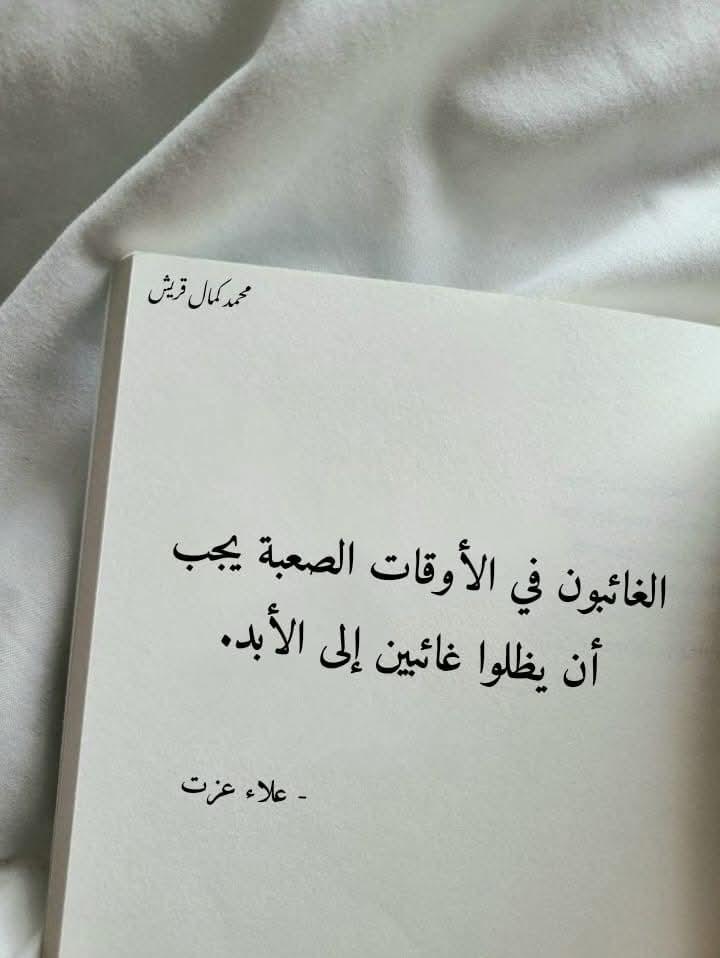 محمد كمال قريش
الغائبون في الأوقات الصعبة يجب
أن يظلوا غائبين إلى الأبد.
- علاء عزت